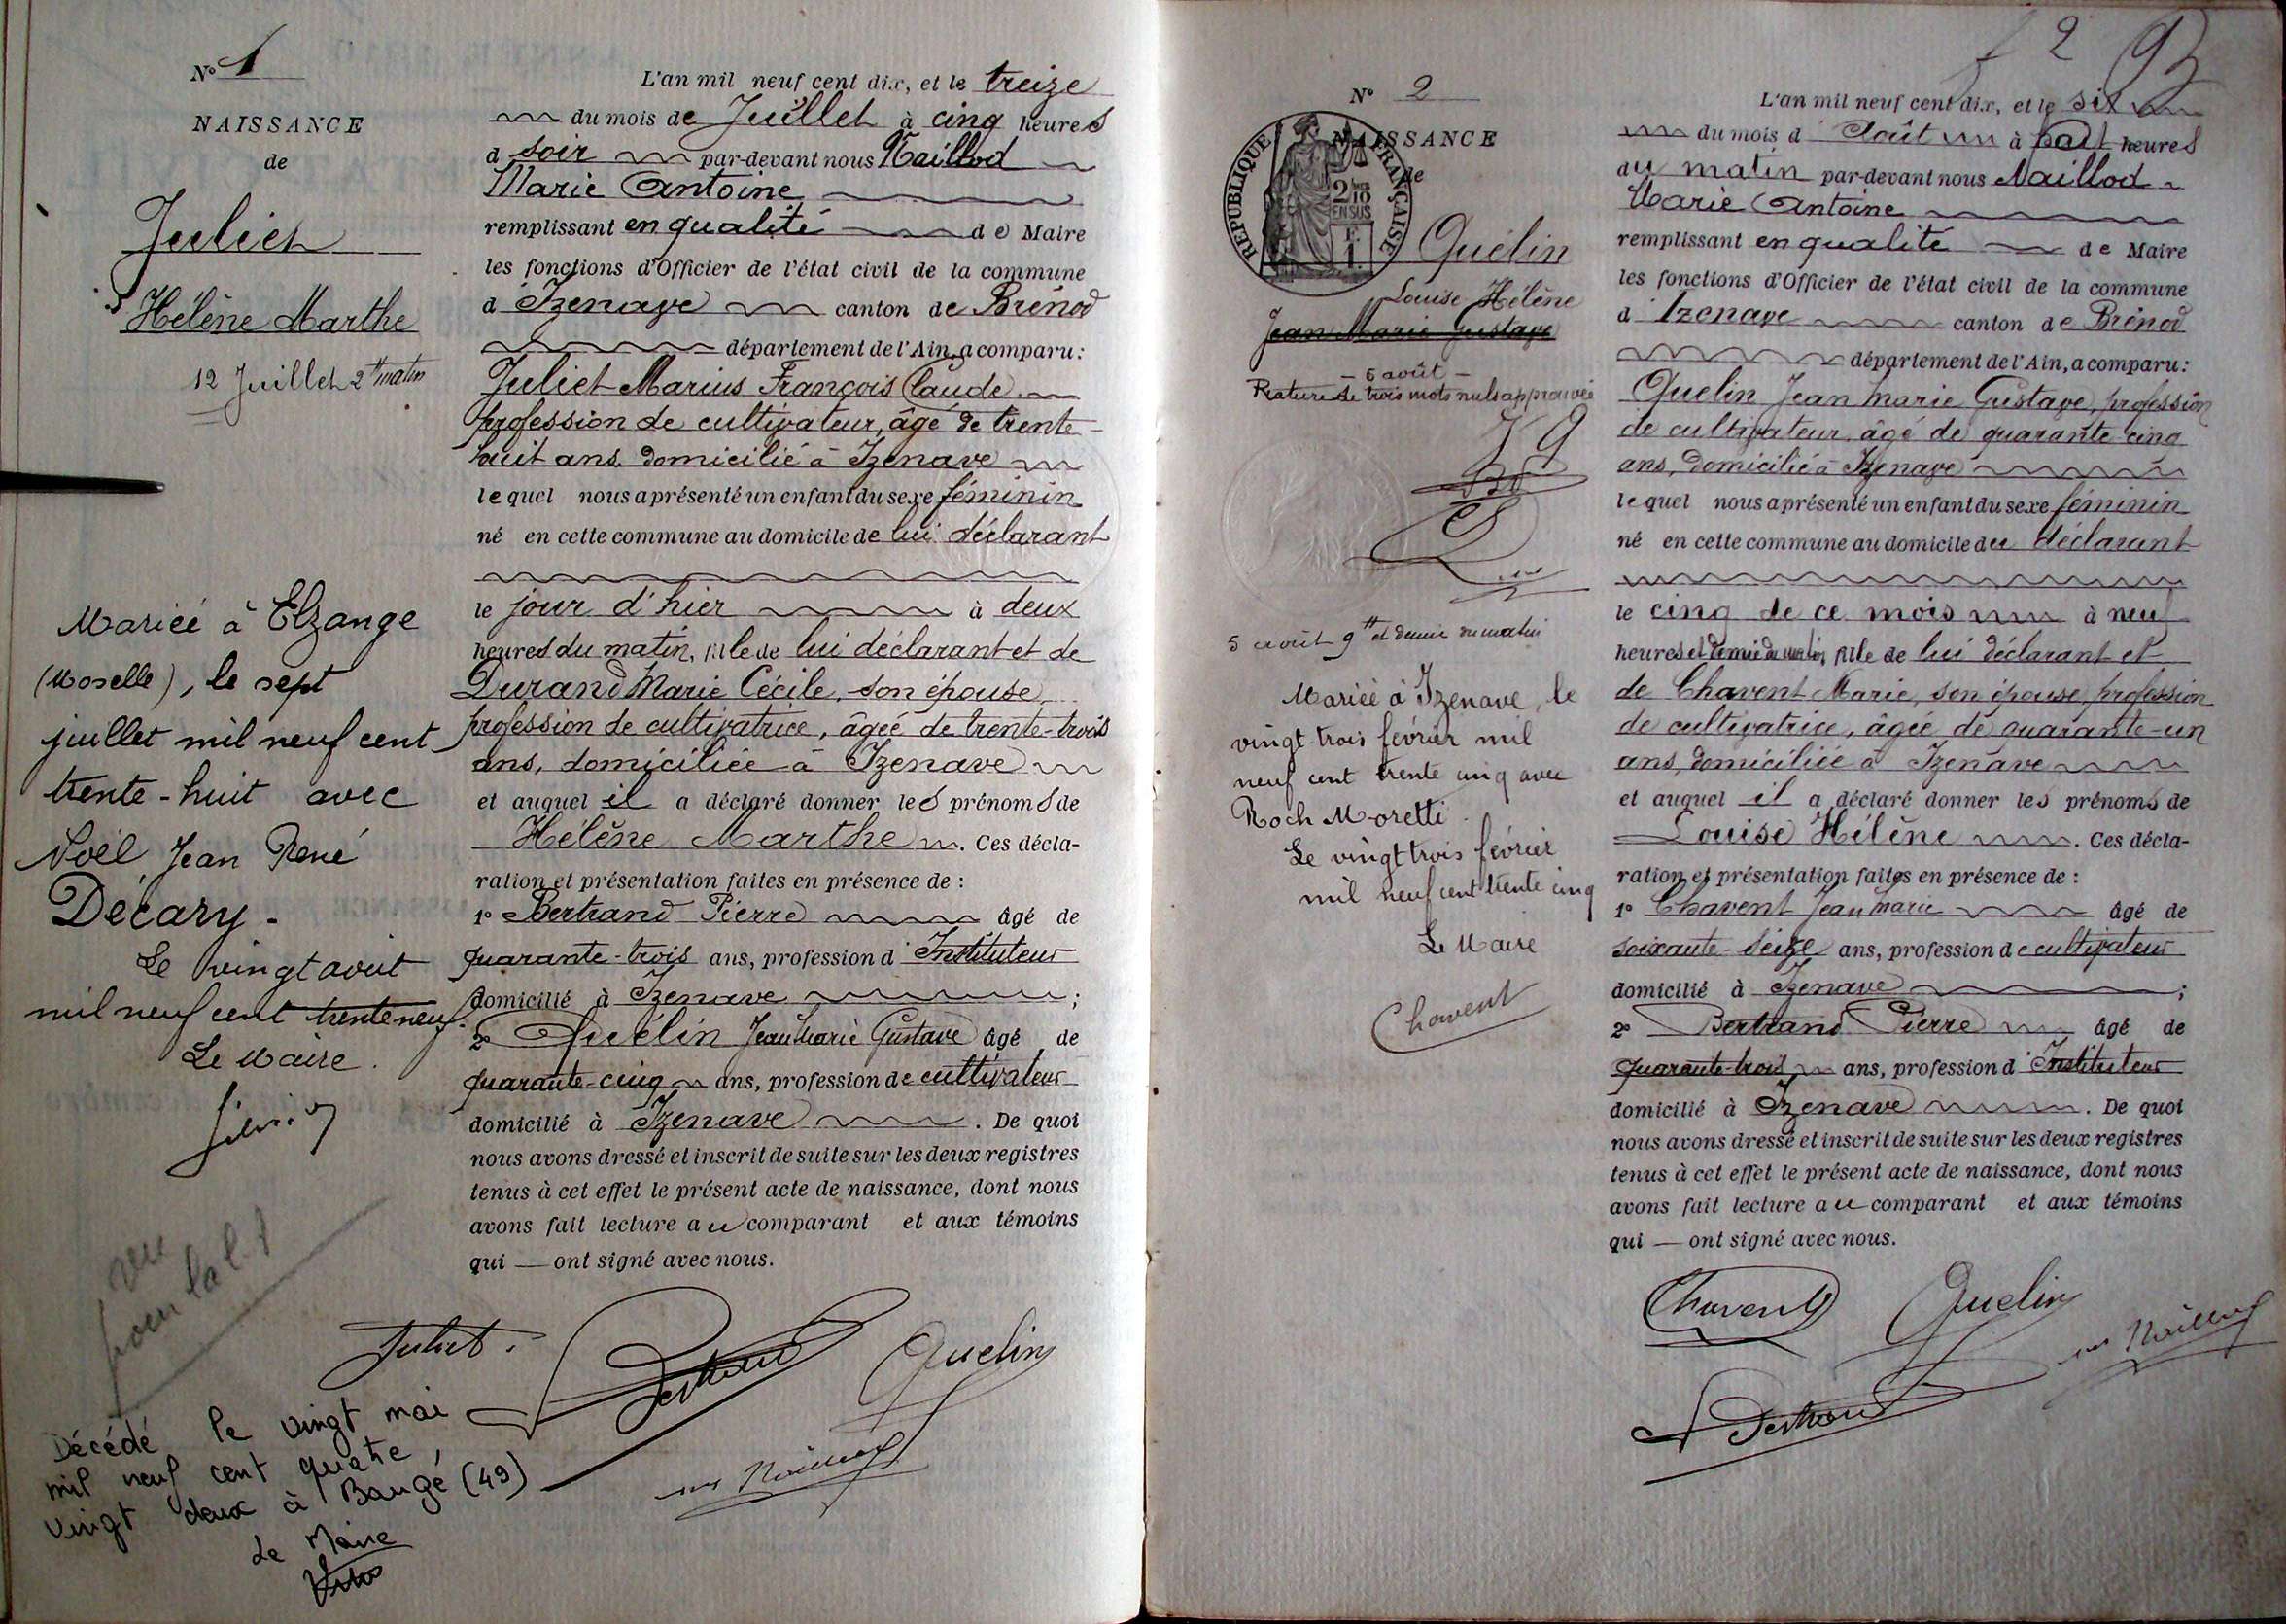 N° 1
NAISSANCE
de
Juliet
Hélène Marthe
12 Juillet 2 h matin
Mariée à Elzange
(Moselle), le sept
juillet mil neuf cent
trente-huit avec
Noël, Jean René
Décary.
Le vingt août
mil neuf cent trente neuf.
Le Maire.
vu
Décédé le vingt mai
mil neuf cent quatre
vingt deux à Baugé (49)
Le Maire
L'an mil neuf cent dix, et le treize
du mois de Juillet à cinq heures
d soir par-devant nous Naillod
Marie Antoine
remplissant en qualité de Maire
les fonctions d'Officier de l'état civil de la commune
d'Izenave canton de Brénod
département de l'Ain, a comparu:
Juliet Marius François Claude
profession de cultivateur, âgé de trente-
huit ans domicilié à Izenave
lequel nous a présenté un enfant du sexe féminin
né en cette commune au domicile de lui déclarant
le jour d'hier à deux
heures du matin, fille de lui déclarant et de
Durand Marie Cécile, son épouse,
profession de cultivatrice, âgée de trente-trois
ans, domiciliée à Izenave
et auquel il a déclaré donner les prénoms de
Hélène Marthe. Ces décla-
ration et présentation faites en présence de :
1° Bertrand Pierre âgé de
quarante-trois ans, profession d'Instituteur
domicilié à Izenave ;
2° Quélin Jean Marie Gustave âgé de
quarante-cinq ans, profession de cultivateur
domicilié à Izenave. De quoi
nous avons dressé et inscrit de suite sur les deux registres
tenus à cet effet le présent acte de naissance, dont nous
avons fait lecture au comparant et aux témoins
qui — ont signé avec nous.
Juliet.
Bertrand
Quelin
Naillod
N° 2
NAISSANCE
de
RÉPUBLIQUE FRANÇAISE
2/10
EN SUS
Quélin
Louise Hélène
Jean Marie Gustave
- 5 août -
Rature de trois mots nuls approuvée
5 août 9 h et demie du matin
Mariée à Izenave, le
vingt trois février mil
neuf cent trente cinq avec
Roch Moretti.
Le vingt trois février
mil neuf cent trente cinq
Le Maire
Chavent
2
L'an mil neuf cent dix, et le six
du mois d'Août à huit heures
du matin par-devant nous Naillod
Marie Antoine
remplissant en qualité de Maire
les fonctions d'Officier de l'état civil de la commune
d'Izenave canton de Brénod
département de l'Ain, a comparu:
Quelin Jean Marie Gustave, profession
de cultivateur, âgé de quarante cinq
ans, domicilié à Izenave
lequel nous a présenté un enfant du sexe féminin
né en cette commune au domicile du déclarant
le cinq de ce mois à neuf
heures et demie du matin, fille de lui déclarant et
de Chavent Marie, son épouse, profession
de cultivatrice, âgée de quarante-un
ans, domiciliée à Izenave
et auquel il a déclaré donner les prénoms de
Louise Hélène. Ces décla-
ration et présentation faites en présence de :
1° Chavent Jean Marie âgé de
soixante-seize ans, profession de cultivateur
domicilié à Izenave ;
2° Bertrand Pierre âgé de
quarante-trois ans, profession d'Instituteur
domicilié à Izenave. De quoi
nous avons dressé et inscrit de suite sur les deux registres
tenus à cet effet le présent acte de naissance, dont nous
avons fait lecture au comparant et aux témoins
qui — ont signé avec nous.
Chavent
Quelin
Naillod
Bertrand